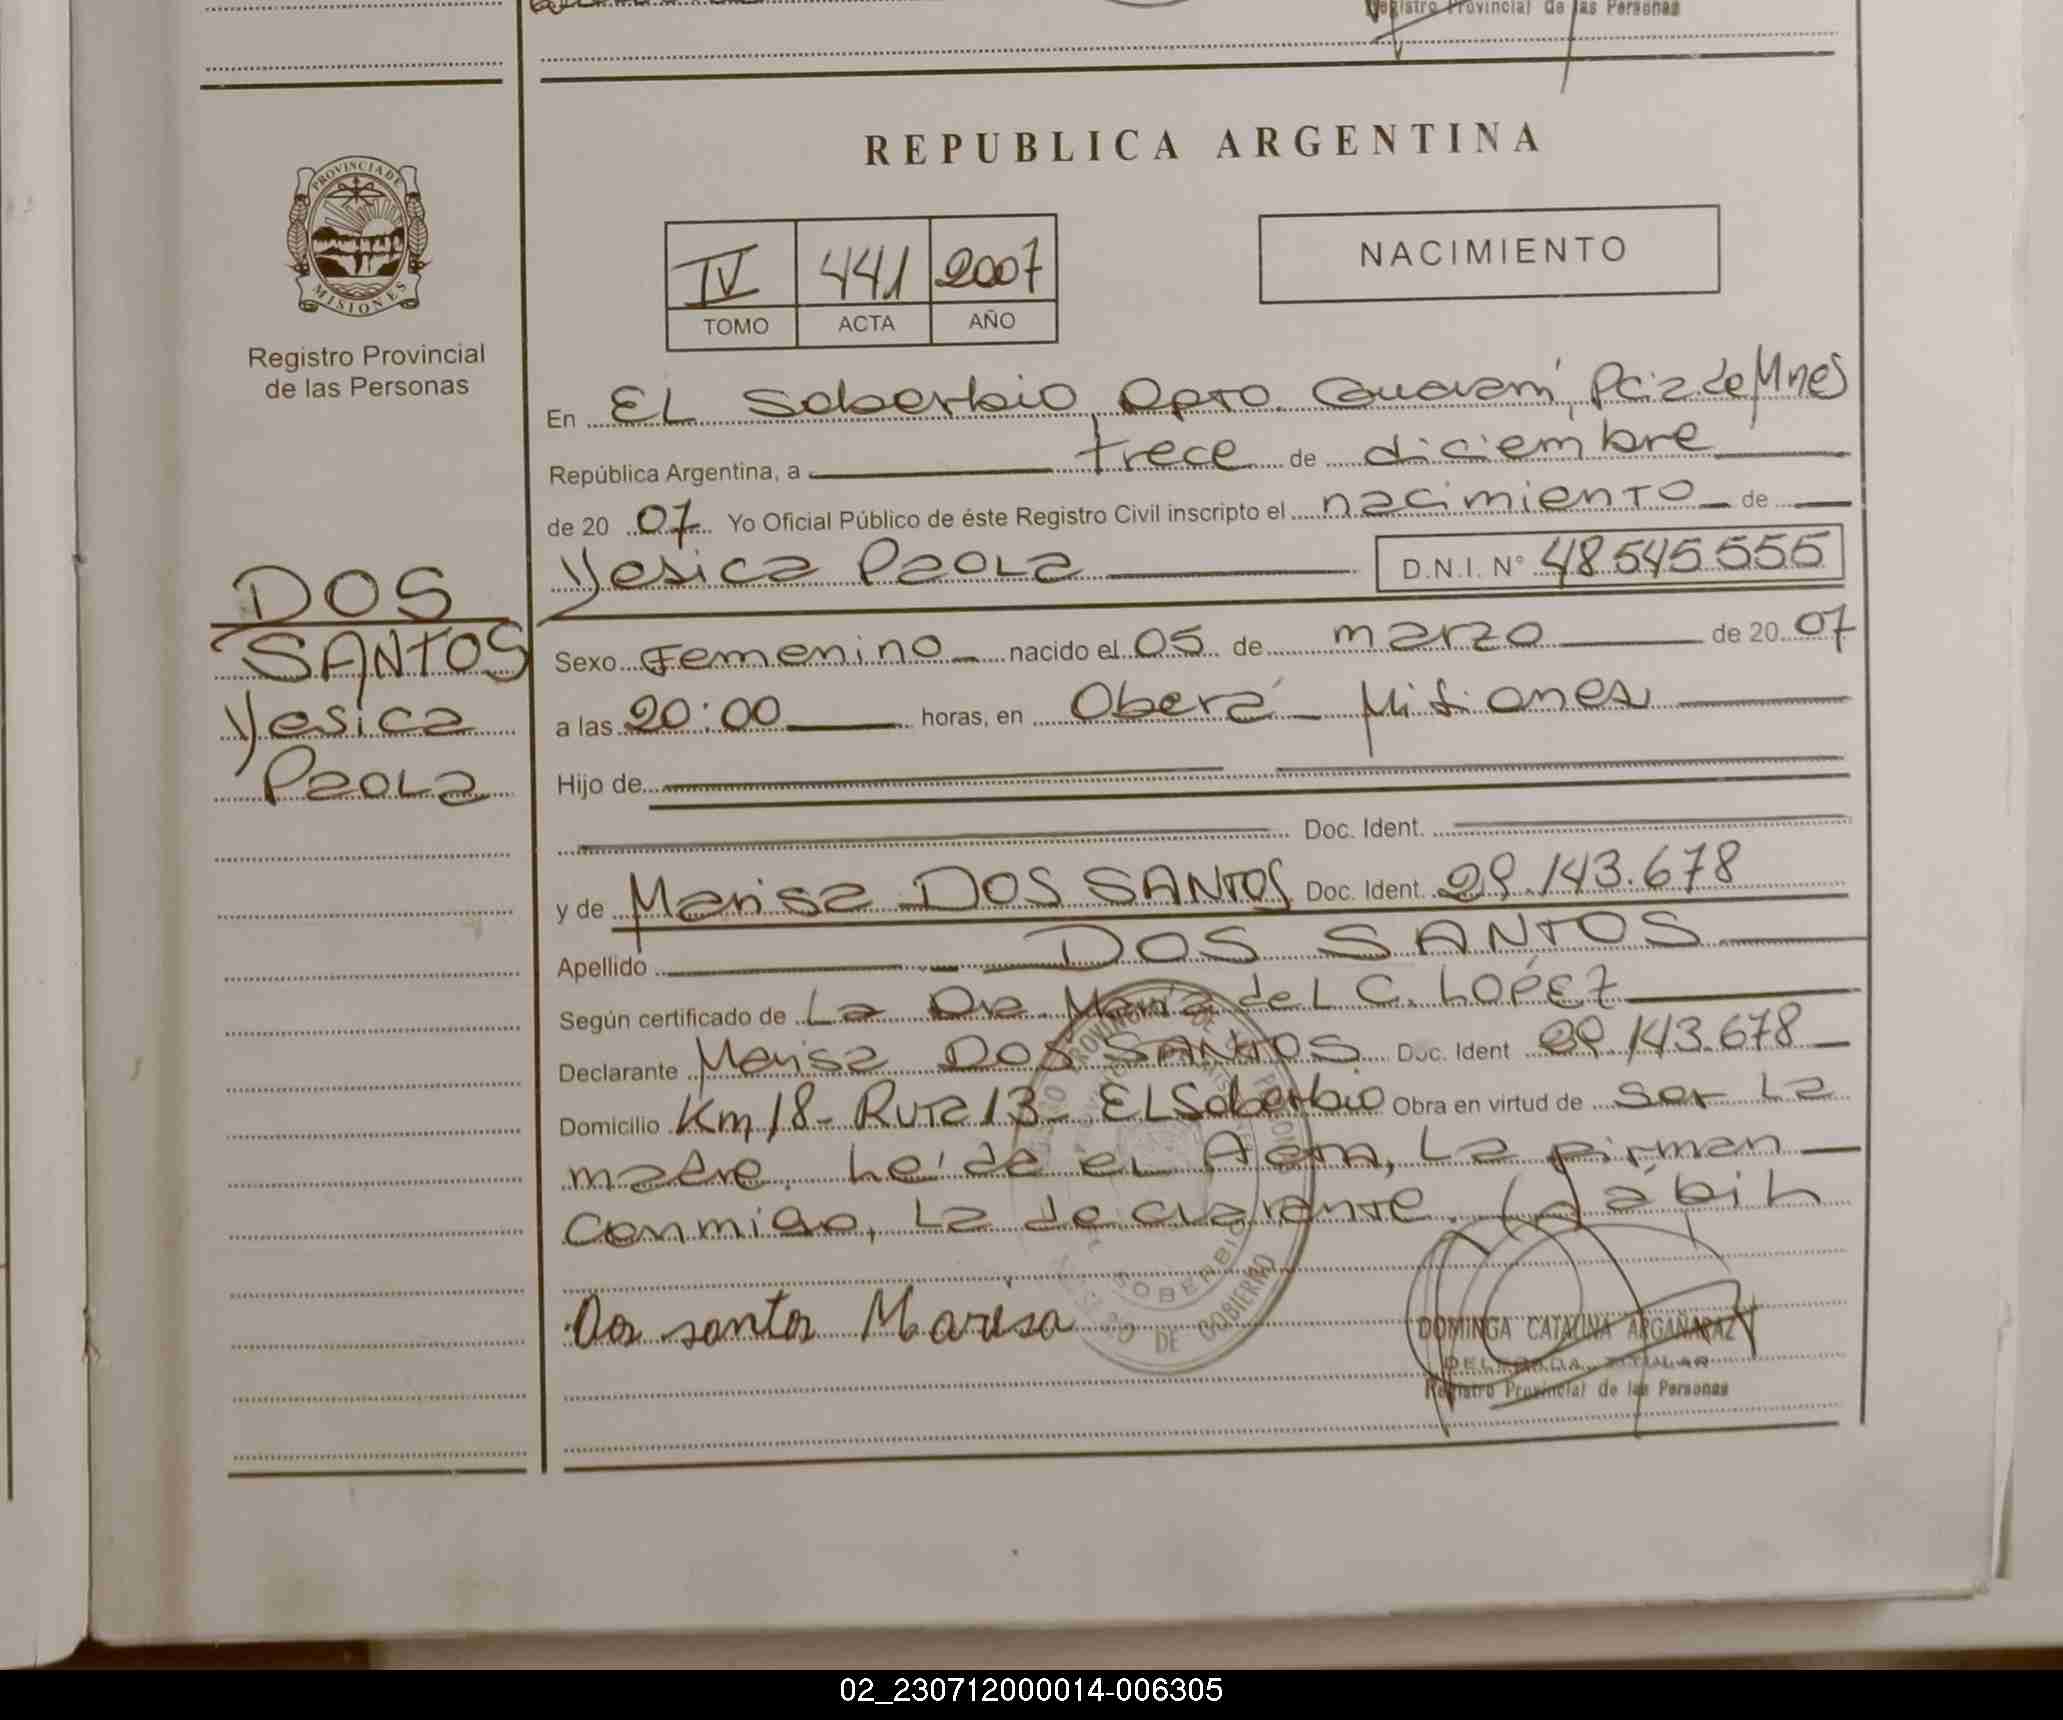 Registro Provincial de las Personas
REPUBLICA ARGENTINA
PROVINCIA DE
MISIONES
Registro Provincial
de las Personas
IV 441 2007
TOMO ACTA AÑO
NACIMIENTO
En EL Soberbio, Dpto. Guaraní, Pcia. de Mnes
República Argentina, a trece de diciembre
de 20 07 Yo Oficial Público de éste Registro Civil inscripto el nacimiento de
Yesica Paola D.N.I. Nº 48.545.555
DOS
SANTOS
Yesica
Paola
Sexo Femenino nacido el 05 de marzo de 20 07
a las 20:00 horas, en Oberá - Misiones
Hijo de
Doc. Ident.
y de Marisa DOS SANTOS Doc. Ident. 29.143.678
Apellido DOS SANTOS
Según certificado de La Dra. María del C. LOPEZ
Declarante Marisa DOS SANTOS Doc. Ident 29.143.678
Domicilio Km 18 - Ruta 13 - EL Soberbio Obra en virtud de ser La
madre. Leída el Acta, La firman
conmigo, La declarante. hábil
SOBERBIO
DE GOBIERNO
Dos santos Marisa
DOMINGA CATALINA ARGAÑARAZ
DELEGADA TITULAR
Registro Provincial de las Personas
02_230712000014-006305